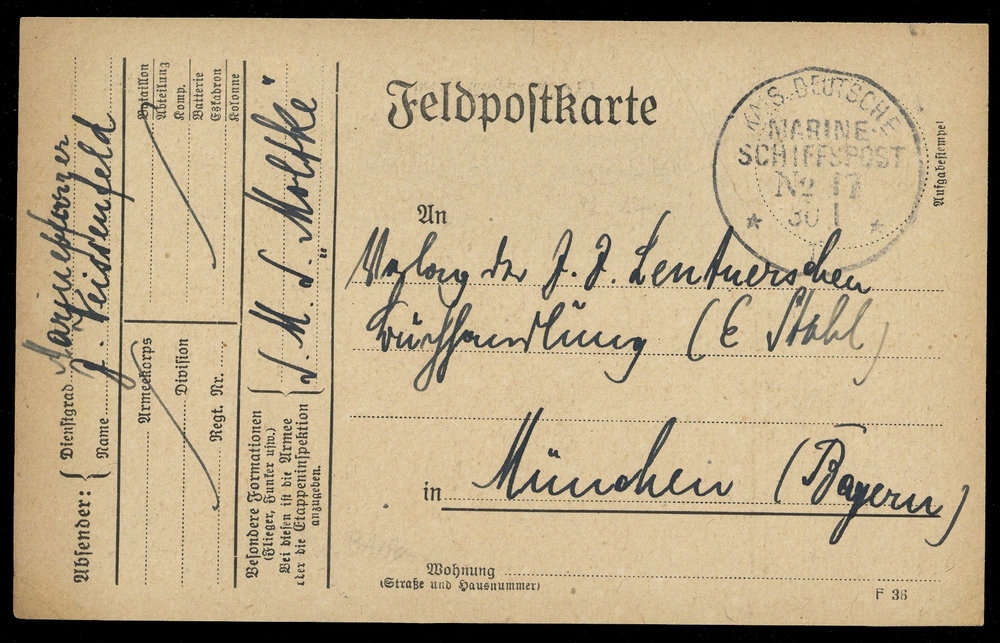 Feldpostkarte
KAIS. DEUTSCHE
MARINE-
SCHIFFSPOST
No 17
30 1
* *
Aufgabestempel
An
Verlag der J. J. Lentnerschen
Buchhandlung (E Stahl)
in München (Bayern)
Wohnung
(Straße und Hausnummer)
F 36
Absender:
Dienstgrad
Name
Bataillon
Abteilung
Komp.
Batterie
Eskadron
Kolonne
Armeekorps
Division
Regt. Nr.
Besondere Formationen
(Flieger, Funker usw.)
Bei diesen ist die Armee
oder die Etappeninspektion
anzugeben.
S. M. S. „Moltke“